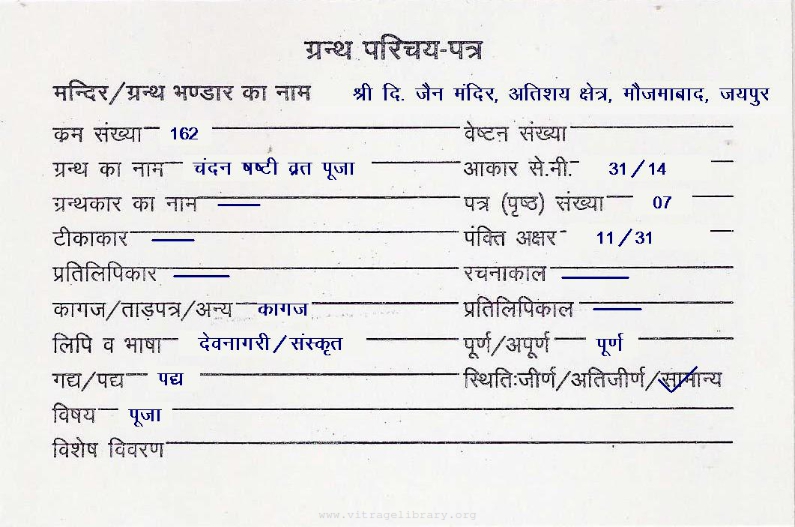 ग्रन्थ परिचय-पत्र
मन्दिर/ग्रन्थ भण्डार का नाम श्री दि. जैन मंदिर, अतिशय क्षेत्र, मौजमाबाद, जयपुर
कम संख्या 162 वेष्टन संख्या
ग्रन्थ का नाम चंदन षष्टी व्रत पूजा आकार से.नी. 31/14
ग्रन्थकार का नाम — पत्र (पृष्ठ) संख्या 07
टीकाकार — पंक्ति अक्षर 11/31
प्रतिलिपिकार — रचनाकाल —
कागज/ताड़पत्र/अन्य कागज प्रतिलिपिकाल —
लिपि व भाषा देवनागरी/संस्कृत पूर्ण/अपूर्ण पूर्ण
गद्य/पद्य पद्य स्थितिःजीर्ण/अतिजीर्ण/सामान्य
विषय पूजा
विशेष विवरण
www.vitragelibrary.org